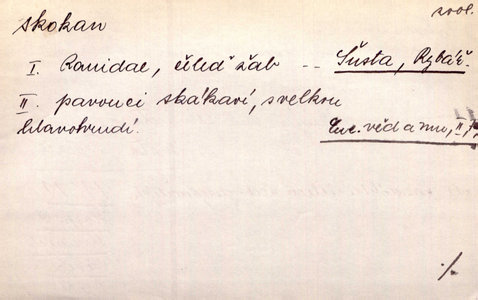 skokan
zool.
I. Ranidae, čileď žab -- Šusta, Rybář.
II. pavouci skákaví, s velkou
hlavohrudí.
věd a um, II,